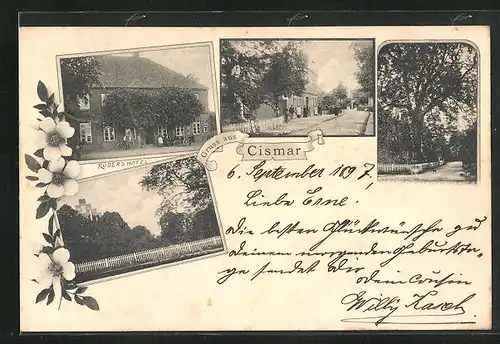 RODERS HOTEL
Gruss aus
Cismar
6. September 1897,
Liebe Erne.
Die besten Glückwünsche zu
Deinem morgenden Geburtsta-
ge sendet Dir
Dein Cousin
Willy Kasch